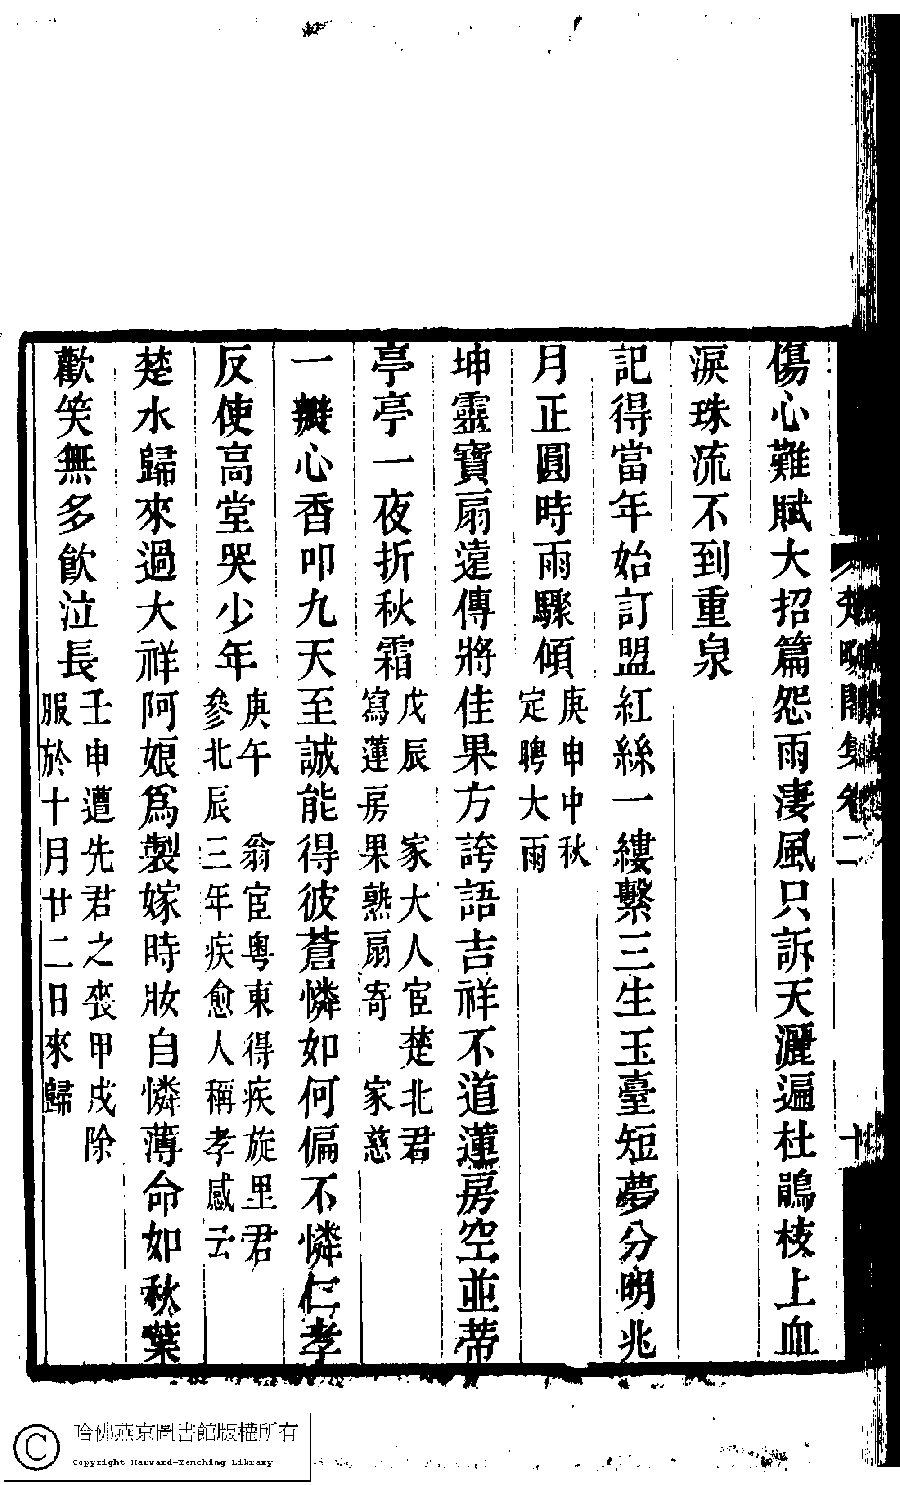 楚畹閣集卷二 十
傷心難賦大招篇怨雨淒風只訴天灑遍杜鵑枝上血
淚珠流不到重泉
記得當年始訂盟紅絲一縷繫三生玉臺短夢分明兆
月正圓時雨驟傾
庚申中秋
定聘大雨
坤靈寶扇遠傳將佳果方誇語吉祥不道蓮房空並蒂
亭亭一夜折秋霜
戊辰 家大人宦楚北君
寫蓮房果熟扇寄 家慈
一瓣心香叩九天至誠能得彼蒼憐如何偏不憐仁孝
反使高堂哭少年
庚午 翁宦粵東得疾旋里君
參北辰三年疾愈人稱孝感云
楚水歸來過大祥阿娘爲製嫁時妝自憐薄命如秋葉
歡笑無多飲泣長
壬申遭先君之喪甲戌除
服於十月廿二日來歸
哈佛燕京圖書館版權所有
Copyright Harvard-Yenching Library